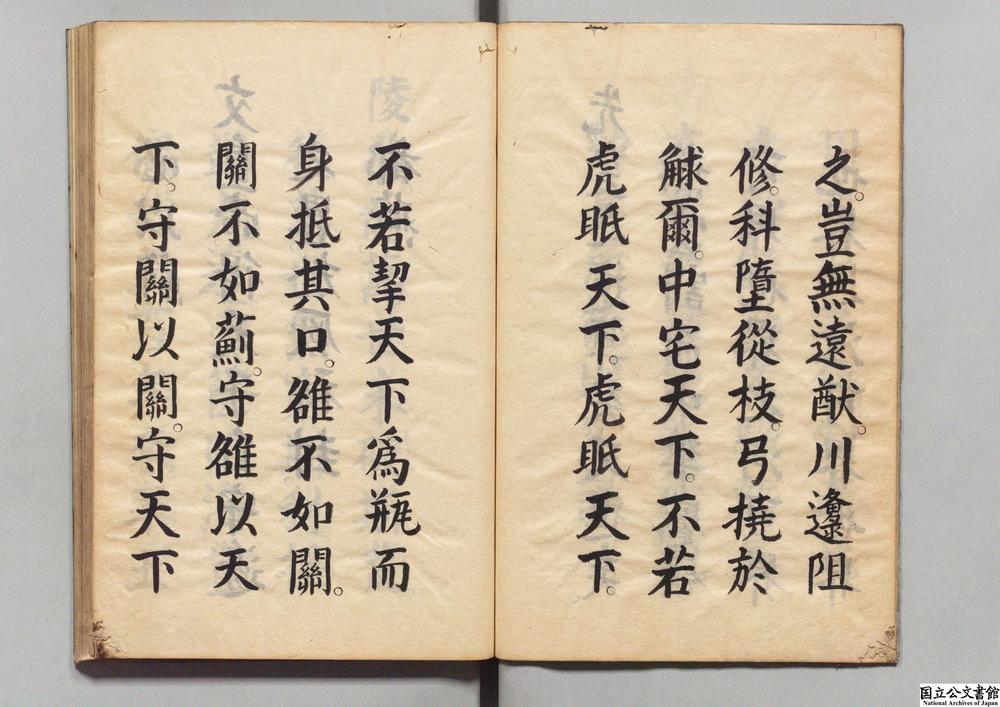 之。豈無遠猷。川遼阻
修。科墮從枝。弓撓於
觩爾。中宅天下。不若
虎眂天下。虎眂天下。
不若挈天下爲瓶而
身抵其口。雒不如關。
關不如薊。守雒以天
下。守關以關。守天下
国立公文書館
National Archives of Japan